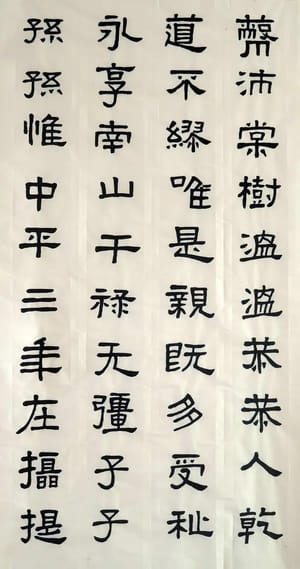 蔽沛棠樹温温恭恭人乾
道不繆唯是親既多受祉
永享南山干禄无彊子子
孫孫惟中平三年在攝提